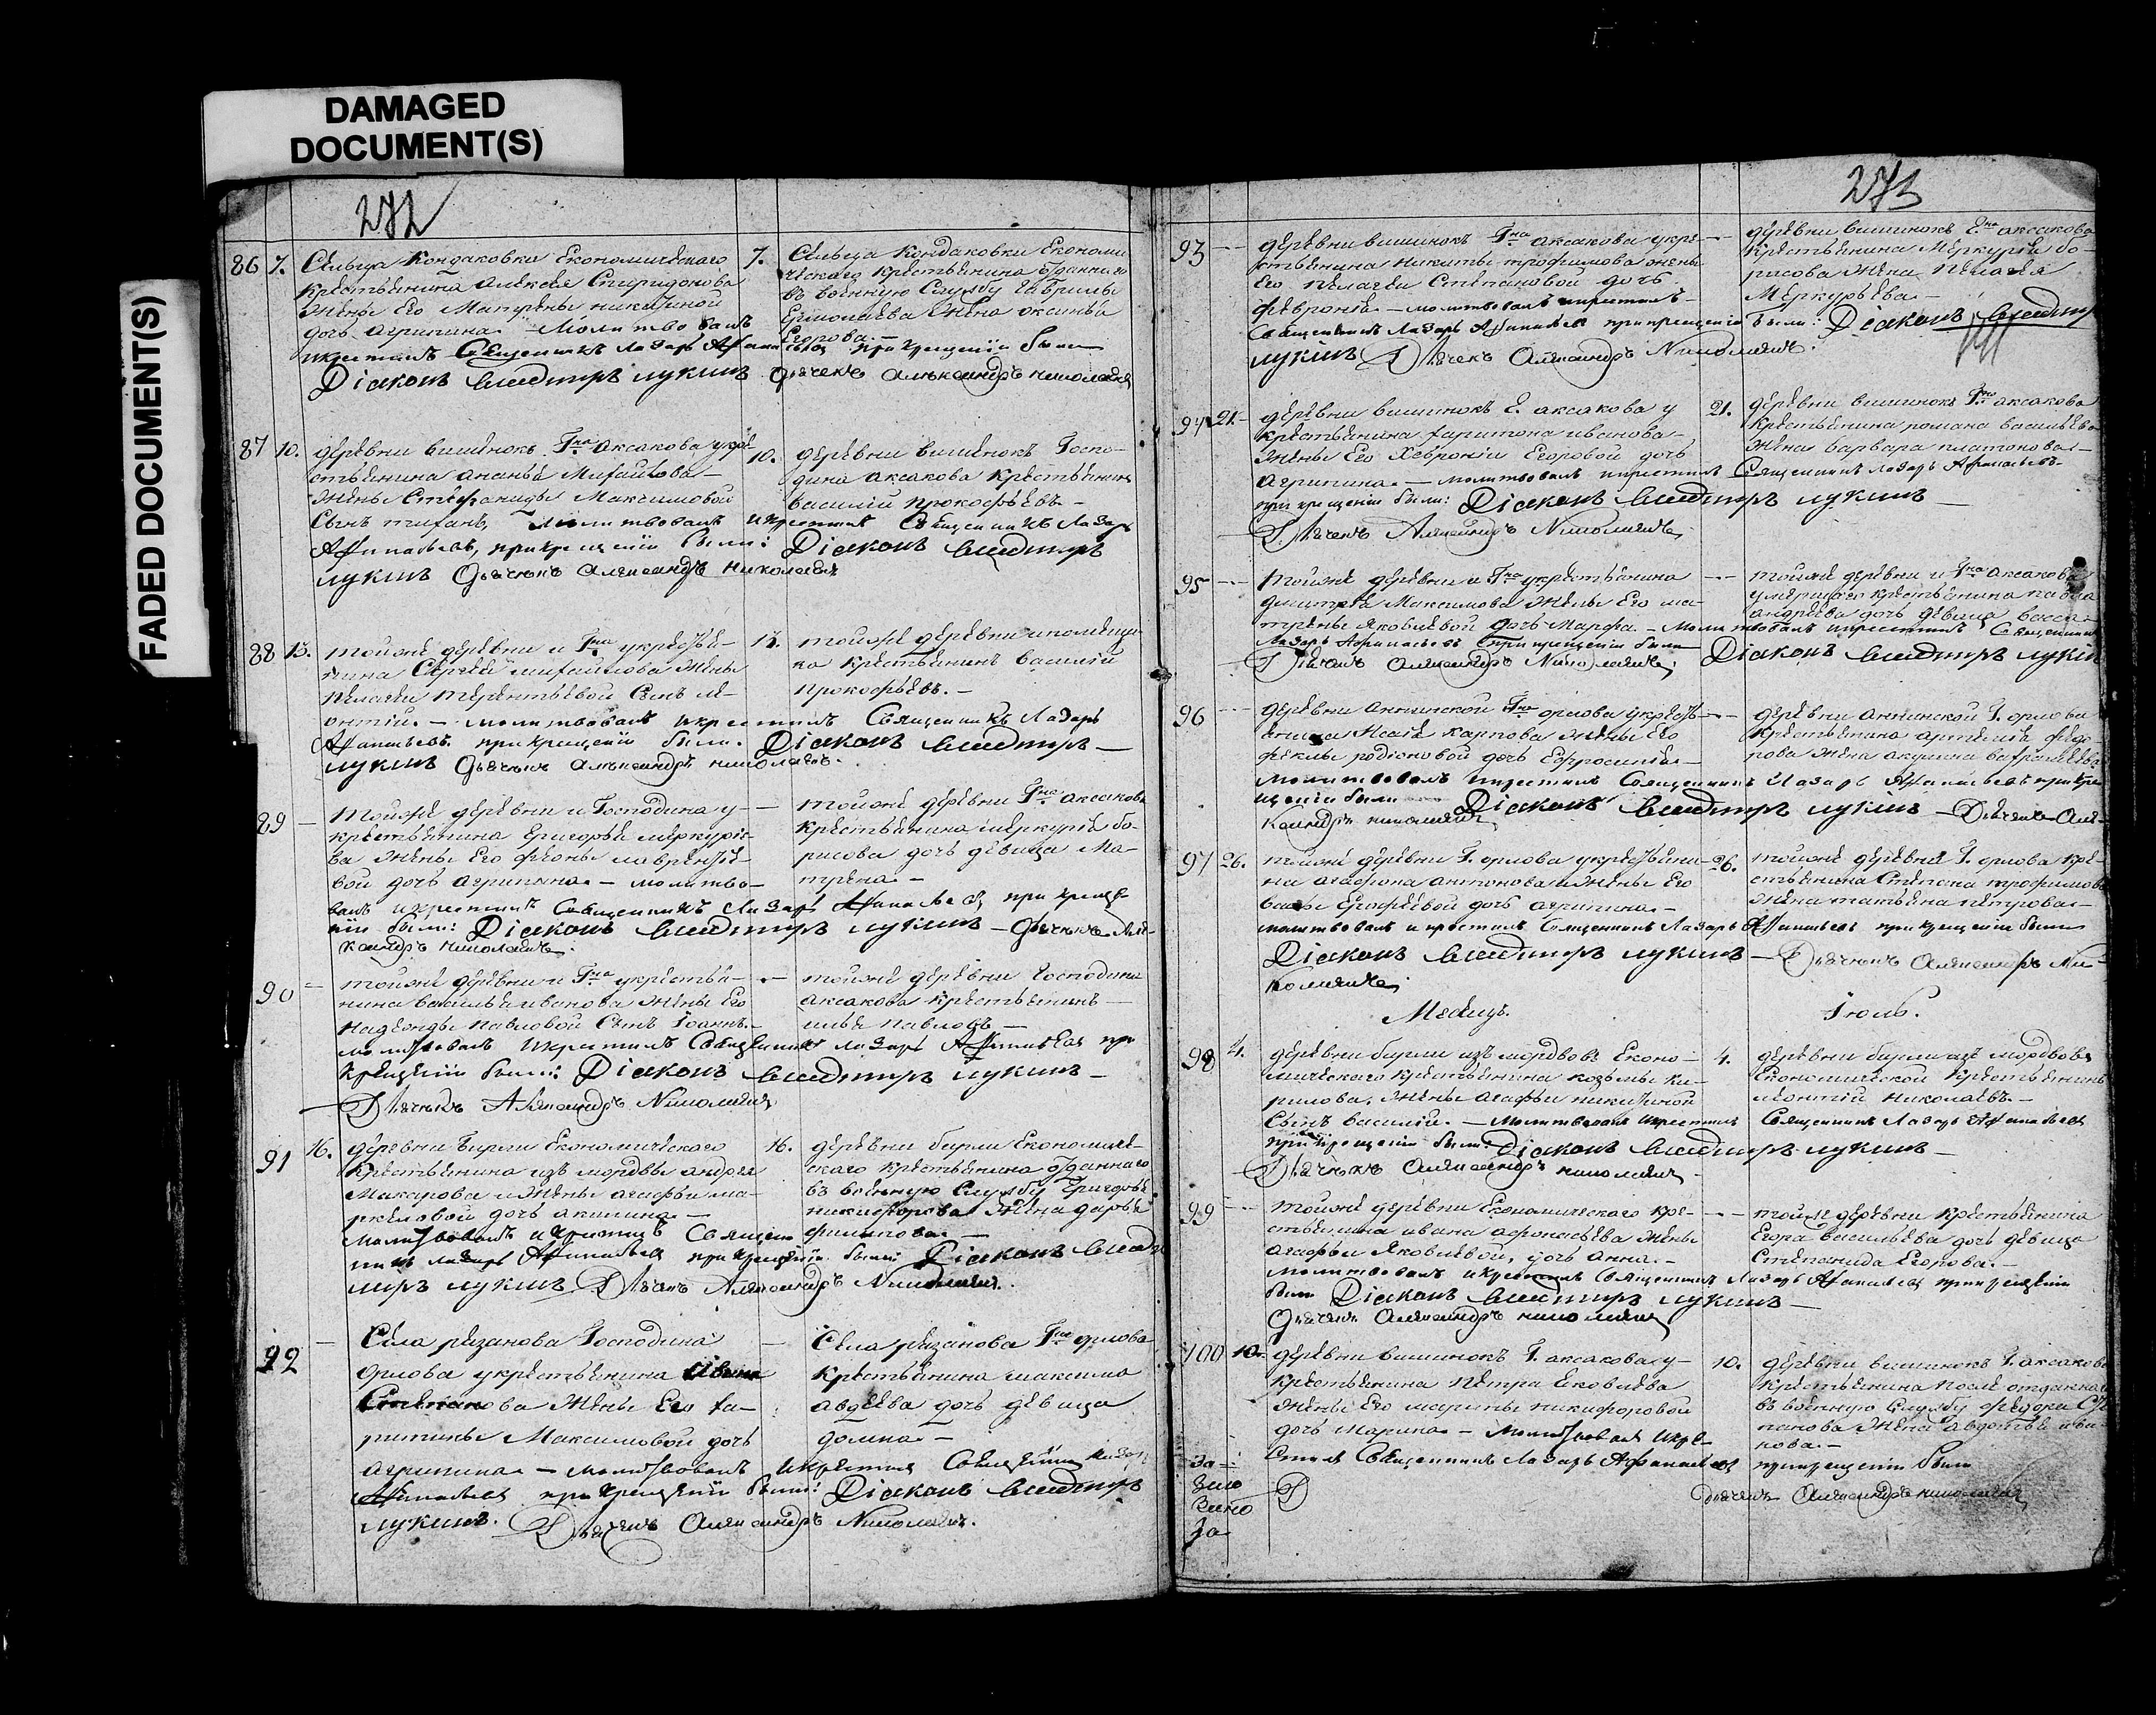 DAMAGED
DOCUMENT(S)
FADED DOCUMENT(S)
272
86 7. Сельца Кондаковки Економического
крестьянина Алексея Спиридонова
жены Его Матрены никитиной
дочь агрипина. — Молитвовалъ
икрестилъ Священникъ Лазарь Афанасьев при крещении были
Діаконъ Владимиръ лукинъ Дьячекъ александръ николаевъ
7. Сельца Кондаковки Економи
ческаго крестьянина отданнаго
въ военную Службу гаврилы
Ермолаева жена оксинья
Егорова. —
87 10. деревни вишенокъ Гна аксакова укре
стьянина ананьи Михайлова
жены Стефаниды Максимовой
Сынъ тихонъ, Молитвовалъ икрестилъ Священникъ Лазарь
Афанасьевъ, прикрещении были: Діаконъ Владимиръ
лукинъ Дьячекъ александръ николаевъ
10. деревни вишенокъ Госпо-
дина аксакова крестьянинъ
василий прокофьевъ. —
88 13. тойже деревни и Гна укрестья-
нина Сергея михайлова жены
пелагеи терентьевой Сынъ ле-
онтий. — молитвовалъ икрестилъ Священникъ Лазарь
Афанасьевъ прикрещении были. Діаконъ Владимиръ —
лукинъ Дьячекъ александръ николаевъ.
13. тойже деревни ипомещи-
ка крестьянинъ василий
прокофьевъ. —
89 — тойже деревни и Господина у-
крестьянина григорья меркурье-
ва жены Его феоны лаврентье-
вой дочь агрипина. — молитво-
валъ икрестилъ Священникъ Лазарь Афанасьев при креще-
нии были: Діаконъ Владимиръ лукинъ — Дьячекъ Але-
ксандръ николаевъ.
— тойже деревни Гна аксакова
крестьянина меркурия бо-
рисова дочь девица Ма-
трена. —
90 — тойже деревни и Гна укрестья-
нина василья иванова жены Его
надежды павловой Сынъ Іоаннъ. —
молитвовалъ икрестилъ Священникъ лазарь Афанасьев при
крещении были: Діаконъ Владимиръ лукинъ —
Дьячекъ Александръ Николаевъ
— тойже деревни Господина
аксакова крестьянинъ —
илья павловъ —
91 16. деревни бирли Економического
крестьянина изъ мордвы андрея
Макарова и жены агафьи ма-
ркеловой дочь акилина —
Молитвовалъ икрестилъ Священ
никъ лазарь Афанасьев при крещении были Діаконъ Влади
миръ лукинъ Дьячекъ Александръ Николаевъ.
16. деревни бирли Економиче-
скаго крестьянина отданнаго
въ военную Службу Григорья
никифорова жена дарья
филипова. —
92 — Села рязанова Господина
орлова укрестьянина Ивана
Степанова жены Его ха-
ритины Максимовой дочь
агрипина. — молитвовалъ икрестил Священникъ лазарь
Афанасьев при крещении были: Діаконъ Владимиръ
лукинъ. Дьячекъ Александръ Николаевъ.
— Села рязанова Гна орлова
крестьянина максима
авдеева дочь девица
домна —
273
93 — деревни вишенокъ Гна аксакова укре-
стьянина никиты трофимова жены
Его пелагеи Степановой дочь
феврония — молитвовалъ икрестилъ —
Священникъ Лазарь Афанасьев прикрещении были: Діаконъ Владимир
лукинъ Дьячекъ Александръ Николаевъ.
— деревни вишенокъ Гна аксакова
крестьянина Меркурия бо-
рисова жена пелагея
Меркурьева —
94 21. деревни вишенокъ Г. аксакова у
крестьянина харитона иванова —
жены Его Хевронии Егоровой дочь
агрипина. — молитвовалъ икрестилъ Священникъ Лазарь Афанасьевъ.
при крещении были: Діаконъ Владимиръ лукинъ —
Дьячекъ Александръ Николаевъ
21. деревни вишенокъ Гна аксакова
крестьянина романа васильева
жена варвара платонова —
95 — тойже деревни и Гна укрестьянина
дмитрея Максимова жены Его ма-
трены Яковлевой дочь Марфа. — Молитвовалъ икрестилъ Священник
Лазарь Афанасьевъ при крещении были
Дьячекъ Александръ Николаевъ Діаконъ Владимиръ лукин
— тойже деревни и Гна аксакова
умершаго крестьянина павла
андреева дочь девица васса —
96 — деревни аннинской Гна орлова укресть-
янина Исаи карпова жены Его
феклы родионовой дочь Ефросинія —
молитвовалъ икрестилъ Священникъ Лазарь Афанасьевъ прикре
щении были — Діаконъ Владимиръ лукинъ — Дьячекъ Але-
ксандръ николаевъ
— деревни аннинской Г. орлова
крестьянина артемия федо-
рова жена акулина варфоломеева
97 26. тойже деревни Г. орлова укрестьяни-
на агафона антонова и жены Его
васы ерофеевой дочь агрипина —
молитвовалъ и крестилъ Священникъ Лазарь Афанасьевъ прикрещении были
Діаконъ Владимиръ лукинъ — Дьячекъ Александръ Ни-
колаевъ
26. тойже деревни Г. орлова кре-
стьянина Степана трофимова
жена татьяна петрова —
Месяцъ. Іюль.
98 4. деревни бирли изъ мордвовъ Еконо-
мическаго крестьянина козьмы ки-
рилова, жены агафьи никитиной
Сынъ василий. — Молитвовалъ икрестил Священникъ Лазарь Афанасьев
прикрещении были Діаконъ Владимиръ лукинъ —
Дьячекъ Александръ николаевъ —
4. деревни бирли изъ мордвовъ
Економической крестьянинъ
леонтий николаевъ. —
99 — тойже деревни Економического кре-
стьянина ивана афонасьева жены
агафьи Яковлевой, дочь анна. —
молитвовалъ икрестилъ Священникъ Лазарь Афанасьев прикрещении
были Діаконъ Владимиръ лукинъ —
Дьячекъ Александръ николаевъ
— тойже деревни крестьянина
Егора васильева дочь девица
Степанида Егорова —
100 10. деревни вишенокъ Г. аксакова у-
крестьянина петра Яковлева
жены Его марины никифоровой
дочь Марина — Молитвовалъ икре-
стилъ Священникъ Лазарь Афанасьев прикрещении были
Дьячекъ Александръ николаевъ
10. деревни вишенокъ Г. аксакова
крестьянина после отданнаго
въ военную службу федора Сте
панова жена авдотья ива-
нова —